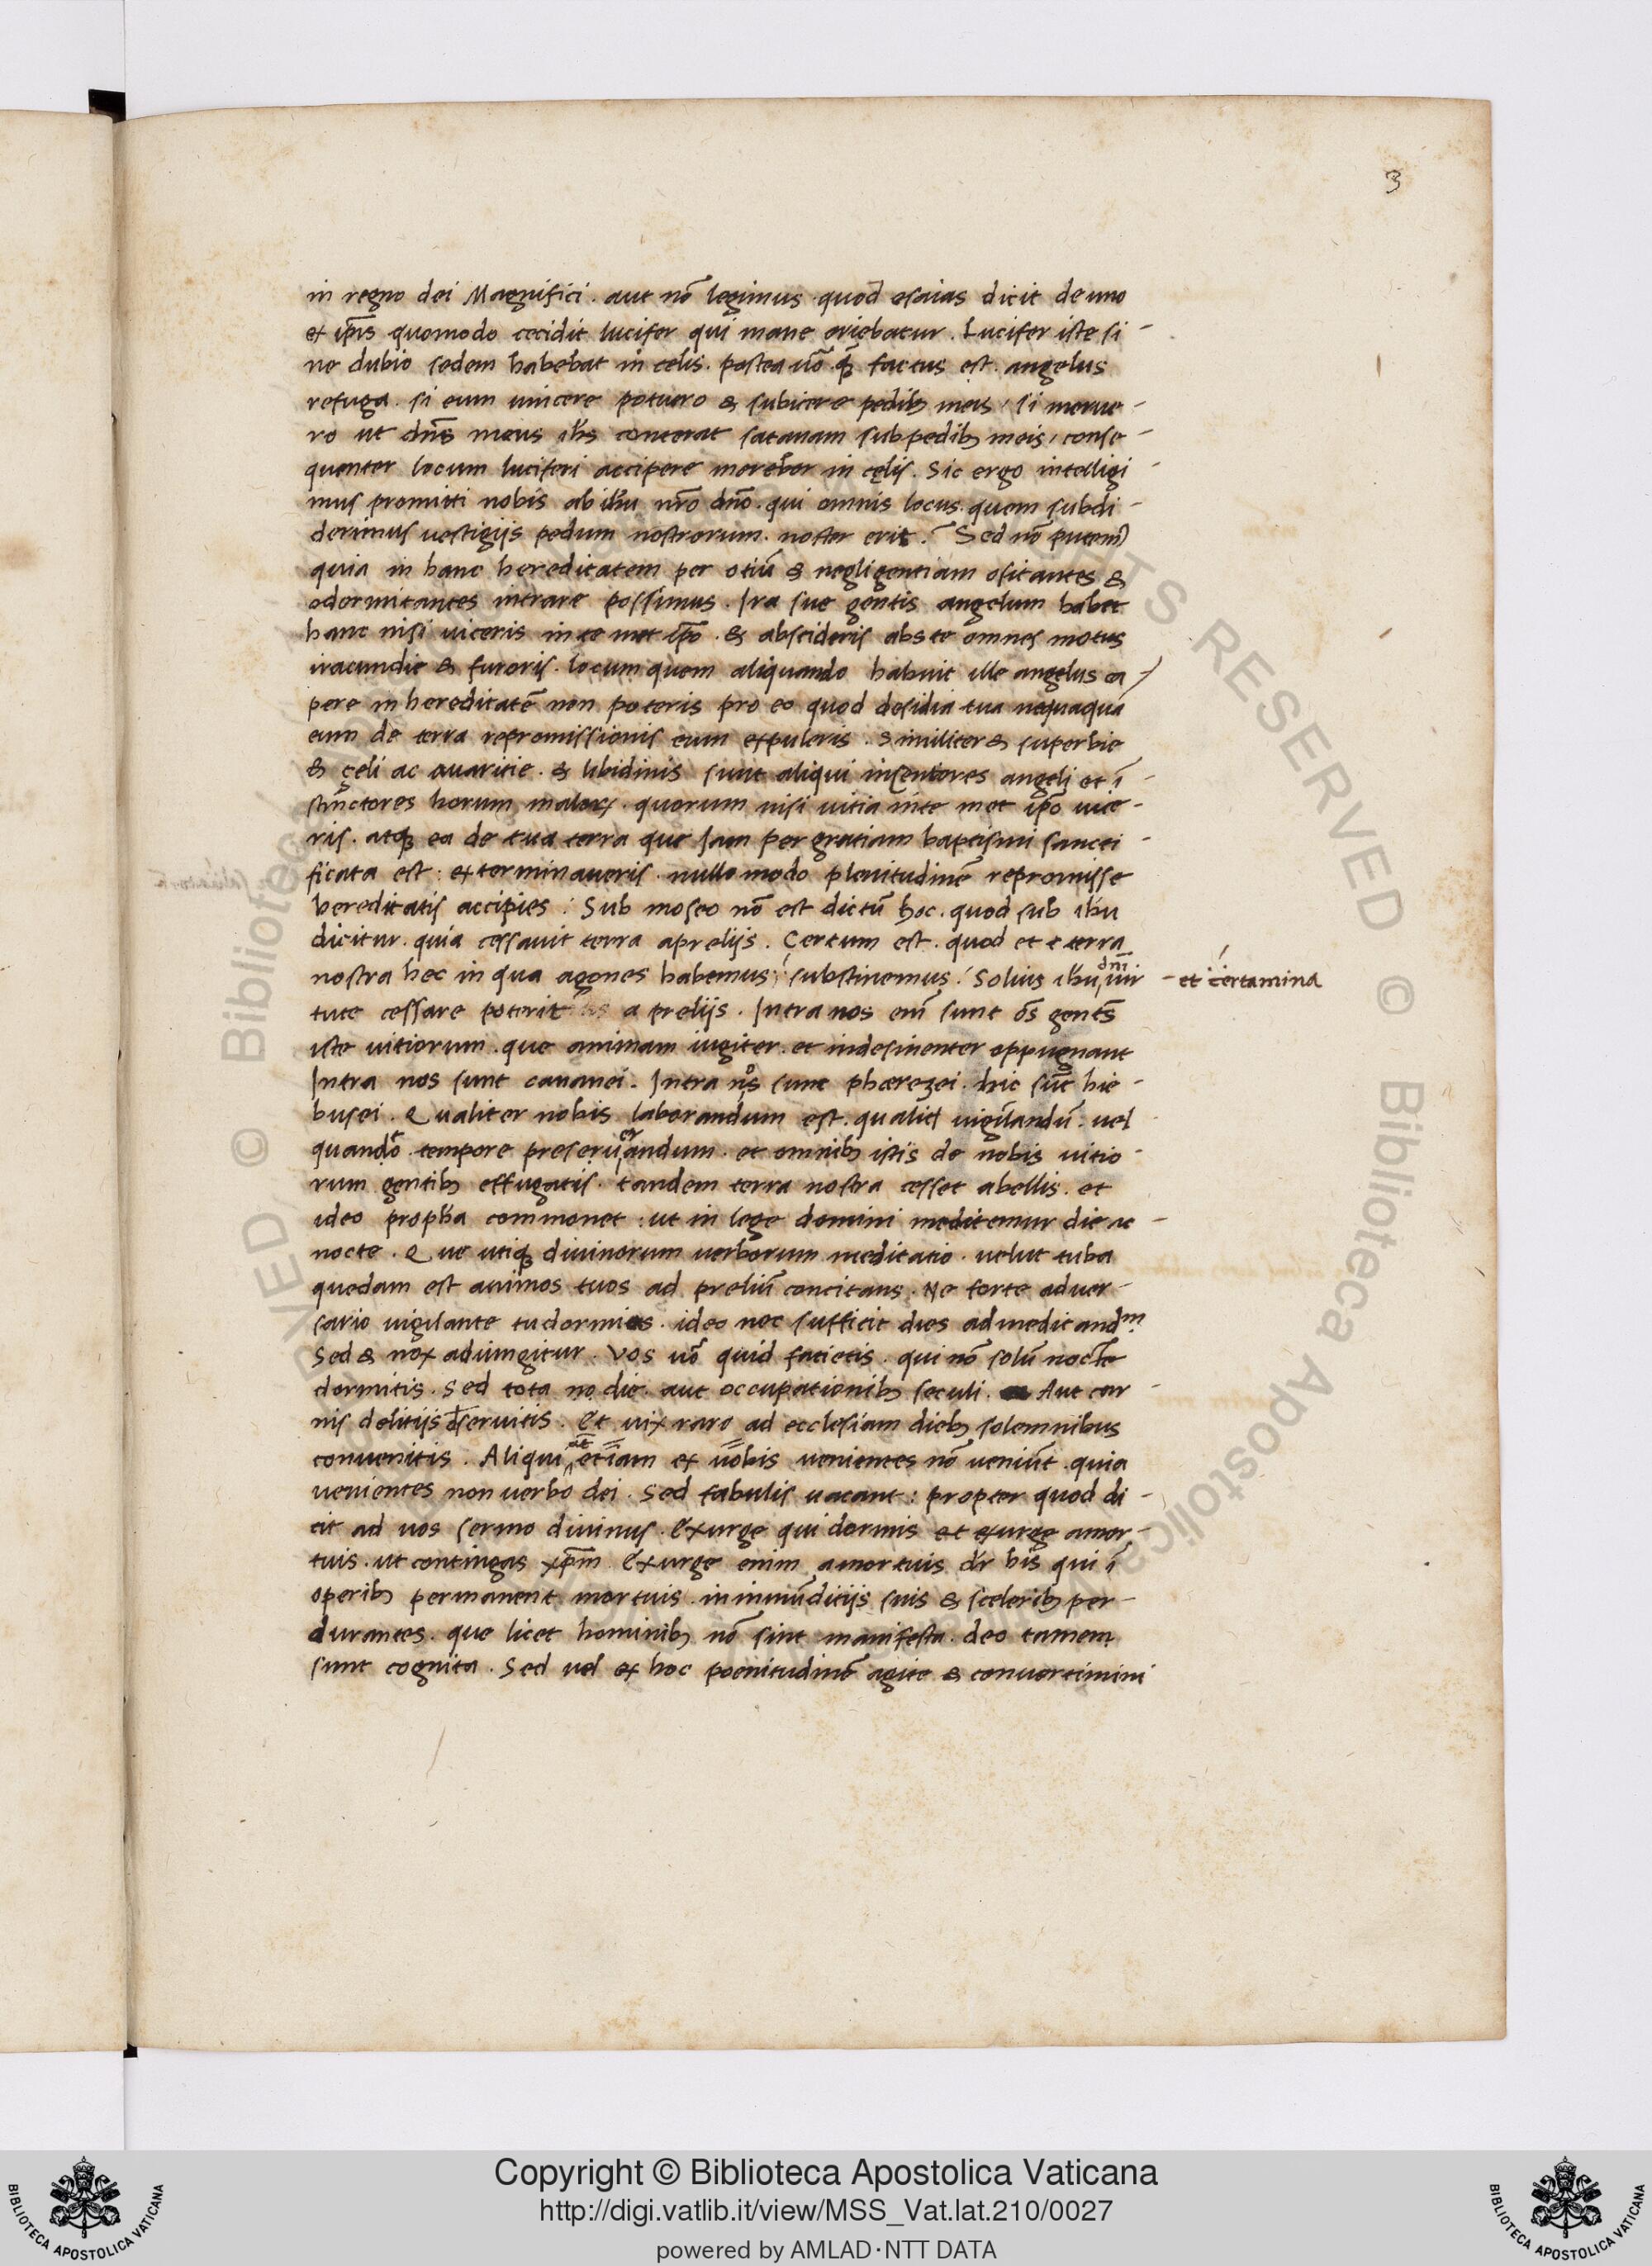 3
in regno dei Magnifici. aut nō legimus quod esaias dicit de uno
ex ip̄is quomodo cecidit lucifer qui mane oriebatur. Lucifer iste si-
ne dubio sedem habebat in celis. postea ūo q̄ factus est angelus
refuga. si eum uincere potuero & subicere pedib; meis, si merue-
ro ut dn̄s meus ih̄s conterat satanam sub pedib; meis, conse-
quenter locum luciferi accipere merebor in cęlis. Sic ergo intelligi-
mus promitti nobis ab ih̄u nr̄o dn̄o. qui omnis locus quem subdi-
derimus uestigijs pedum nostrorum. noster erit. Sed nō putem
quia in hanc hereditatem per otiū & negligentiam ositantes &
odormitantes intrare possimus. Ira sue gentis angelum habet
hanc nisi uiceris in te met ip̄o. & abscideris abs te omnes motus
iracundie & furoris. locum quem aliquando habuit ille angelus ca/
pere in hereditatē non poteris pro eo quod desidia tua nequaquā
eum de terra repromissionis eum expuleris. similiter & superbie
& çeli ac auaritie. & libidinis sunt aliqui insentores angeli et ī-
stinctores horum malorꝝ. quorum nisi uitia in te met ip̄o uice-
ris. atq; ea de tua terra que Jam per gratiam baptismi sancti-
ficata est: exterminaueris. nullo modo plenitudinē repromisse
hereditatis accipies: Sub moseo nō est dictū hoc. quod sub ih̄u
dicitur. quia cessauit terra a prelijs. Certum est. quod et t terra
nostra hec in qua agones habemus; substinemus: Solius ih̄u dn̄i uir- - et certamina
tute cessare poterit a prelijs. Intra nos eni sunt ōs gents
iste uitiorum. que animam iugiter et indesinenter oppugnant
Intra nos sunt cananei. Intra nos sunt pherezei. hic sūt hie-
busei. Qualiter nobis laborandum est. qualit uigilandū. uel
quando tempore preseruandum er. et omnib; istis de nobis uitio-
rum gentib; effugatis. tandem terra nostra cesset abellis. et
ideo proph̄a commonet: ut in lege domini meditemur die ac-
nocte. Que utiq; diuinorum uerborum meditatio. uelut tuba
quedam est animos tuos ad preliū concitans. Ne forte aduer-
sario uigilante tu dormias. ideo nec sufficit dies ad meditandm
Sed & nox adiungitur. Vos ūo quid facietis. qui nō solū nocte
dormitis. sed tota no die. aut occupationib; seculi. Aut car-
nis delitijs deseruitis. Et uix raro ad ecclesiam dieb; solemnibus
conuenitis. Aliqui at etiam ex uobis uenientes nō ueniūt. quia
uenientes non uerbo dei. Sed fabulis uacant: propter quod di-
cit ad uos sermo diuinus. Exurge qui dormis et exurge amor-
tuis. ut contingas xp̄m. Exurge enim amortuis dr̄ his qui ī
operib; permanent mortuis. in inmūditijs suis & scelerib; per-
durantes. que licet hominib; nō sint manifesta. deo tamem
sunt cognita. Sed uel ex hoc poenitudinē agite & conuertimini
Copyright © Biblioteca Apostolica Vaticana
http://digi.vatlib.it/view/MSS_Vat.lat.210/0027
powered by AMLAD·NTT DATA
BIBLIOTECA APOSTOLICA VATICANA
BIBLIOTECA APOSTOLICA VATICANA